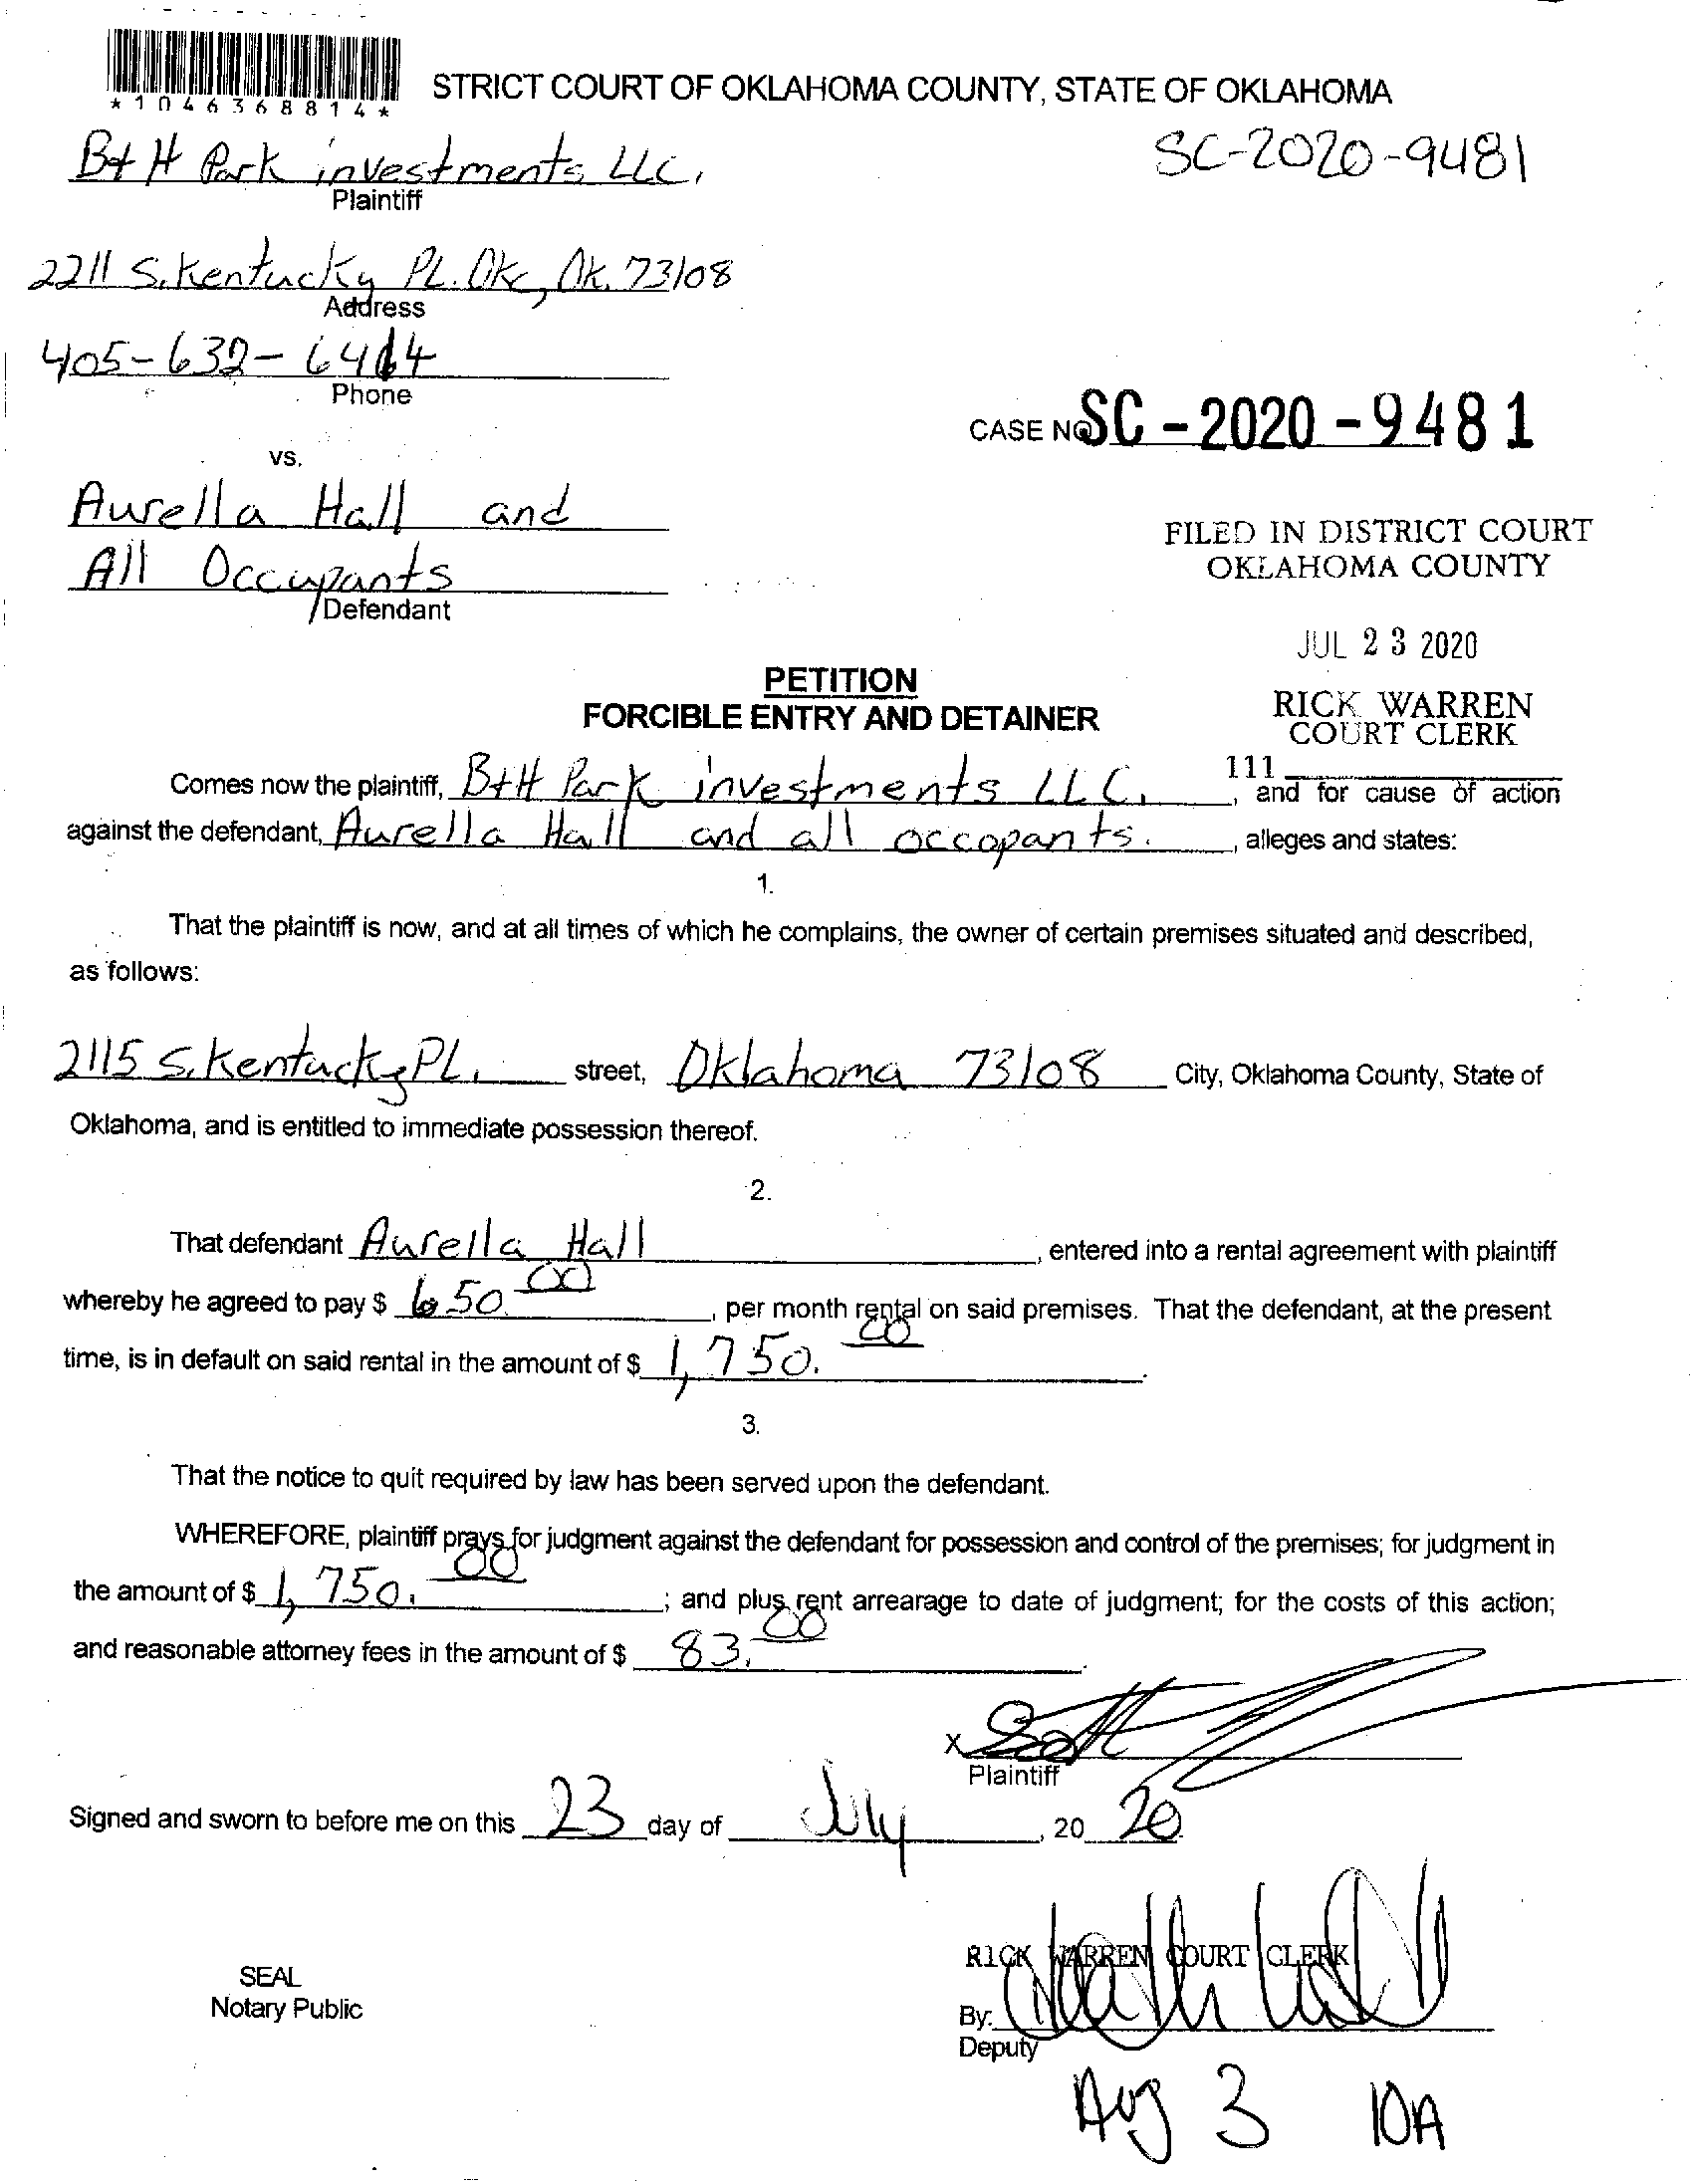 *1046368814*
STRICT COURT OF OKLAHOMA COUNTY, STATE OF OKLAHOMA
B+H Park investments LLC,
SC-2020-9481
Plaintiff
2211 S. Kentucky PL. Okc, Ok. 73108
Address
405-632-6414
Phone
CASE NO. SC-2020-9481
vs.
Aurella Hall and
All Occupants
Defendant
FILED IN DISTRICT COURT
OKLAHOMA COUNTY
JUL 23 2020
RICK WARREN
COURT CLERK
111
PETITION
FORCIBLE ENTRY AND DETAINER
Comes now the plaintiff, B+H Park investments LLC, , and for cause of action
against the defendant, Aurella Hall and all occopants. , alleges and states:
1.
That the plaintiff is now, and at all times of which he complains, the owner of certain premises situated and described,
as follows:
2115 S. Kentucky PL. street, Oklahoma 73108 City, Oklahoma County, State of
Oklahoma, and is entitled to immediate possession thereof.
2.
That defendant Aurella Hall , entered into a rental agreement with plaintiff
whereby he agreed to pay $ 650.00 , per month rental on said premises. That the defendant, at the present
time, is in default on said rental in the amount of $ 1,750.00 .
3.
That the notice to quit required by law has been served upon the defendant.
WHEREFORE, plaintiff prays for judgment against the defendant for possession and control of the premises; for judgment in
the amount of $ 1,750.00 ; and plus rent arrearage to date of judgment; for the costs of this action;
and reasonable attorney fees in the amount of $ 83.00 .
X
Plaintiff
Signed and sworn to before me on this 23 day of July , 20 20
RICK WARREN COURT CLERK
SEAL
Notary Public
By:
Deputy
Aug 3 10A